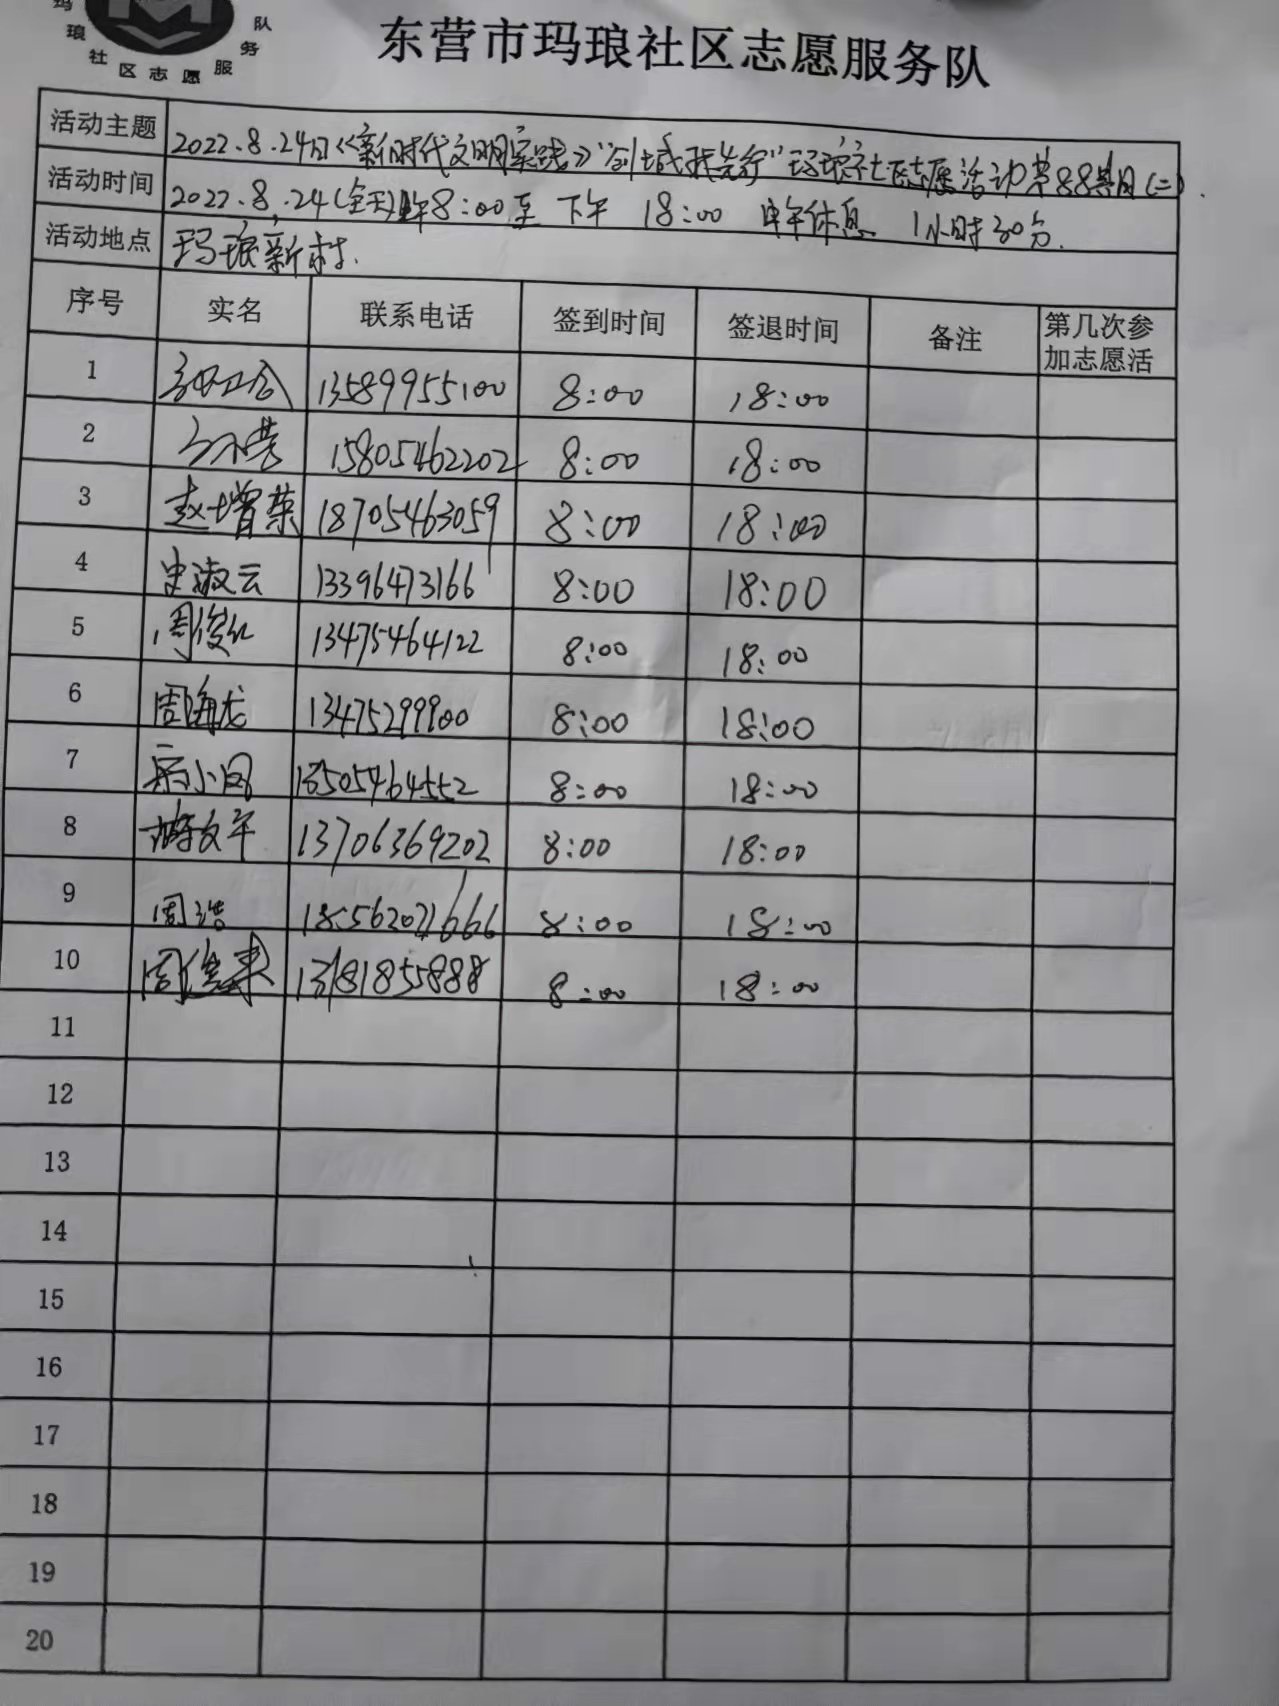 玛琅社区志愿服务队
东营市玛琅社区志愿服务队
活动主题 2022.8.24日《新时代文明实践》"创城我先行"玛琅社区志愿活动第88期(二).
活动时间 2022.8.24(全天)上午8:00至 下午 18:00 中午休息 1小时30分.
活动地点 玛琅新村.
序号 实名 联系电话 签到时间 签退时间 备注 第几次参加志愿活
1 13589955100 8:00 18:00
2 15805462202 8:00 18:00
3 赵增荣 18705463059 8:00 18:00
4 史淑云 13396473166 8:00 18:00
5 周俊红 13475464122 8:00 18:00
6 周海龙 13475299900 8:00 18:00
7 小凤 13505464552 8:00 18:00
8 文军 13706369202 8:00 18:00
9 周浩 18:00 8:00
10 周 13181855888 8:00 18:00
11
12
13
14
15
16
17
18
19
20